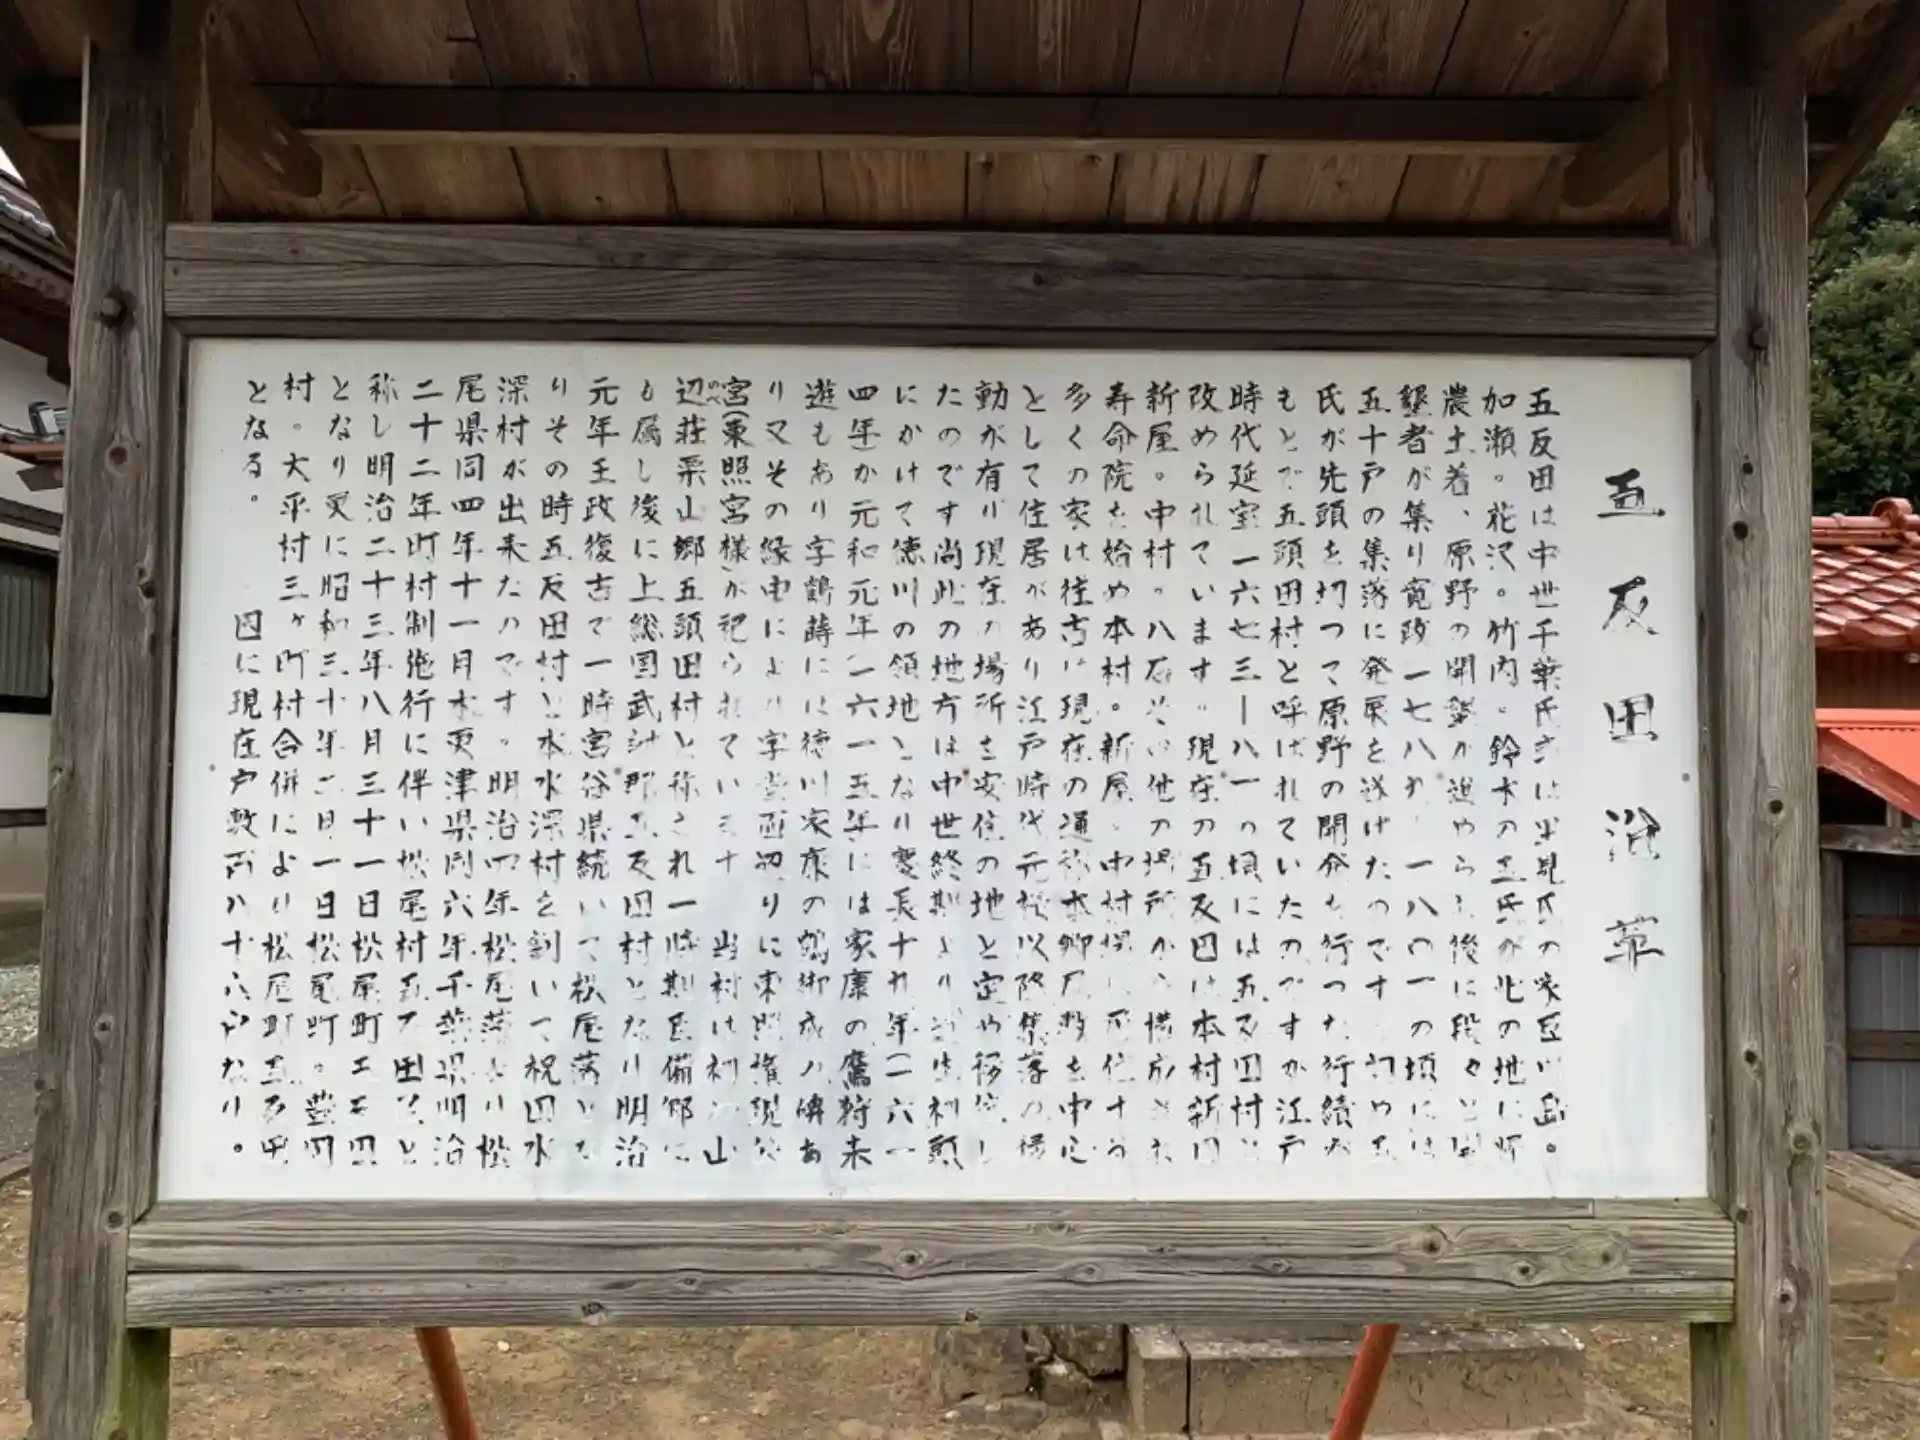 五反田沿革
五反田は中世千葉氏 は 見氏の家臣 。
加瀬。花沢。竹内。鈴木の五氏が北の地に
農土着、原野の開墾が進められ後に段々と開
墾者が集り寛政一七八九 一八〇一の頃には
五十戸の集落に発展を遂げたのです 初め五
氏が先頭を切つて原野の開発を行つた行績が
もとで五頭田村と呼ばれていたのですが江戸
時代延宝一六七三―八一の頃には五反田村と
改められています。現在の五反田は本村新田
新屋。中村。八石その他の場所から構成され
寿命院を始め本村。新屋。中村 位する
多くの家は往古は現在の通称本郷屋敷を中心
として住居があり江戸時代元禄以降集落の移
動が有り現在の場所を安住の地と定め移住し
たのです尚此の地方は中世終期より 頭
にかけて徳川の領地となり慶長十九年(一六一
四年)か元和元年(一六一五年)には家康の鷹狩来
遊もあり字鶴蒔には徳川家康の鶴御成八 あ
り又その縁由により字堂面辺りに東照権現
宮(東照宮様)が祀られています 当村は 山
辺荘栗山郷五頭田村と称され一時期 備 に
も属し後に上総国武射郡五反田村となり明治
元年王政復古で一時宮谷県続いて松尾藩とな
りその時五反田村と水深村を割いて祝田水
深村が出来たのです。明治四年松尾藩より松
尾県同四年十一月木更津県同六年千葉県明治
二十二年町村制施行に伴い松尾村五反田区と
称し明治二十三年八月三十一日松尾町五反田
となり更に昭和三十年二月一日松尾町。豊岡
村。大平村三ヶ町村合併により松尾町五反田
となる。 因に現在戸数百八十六戸なり。